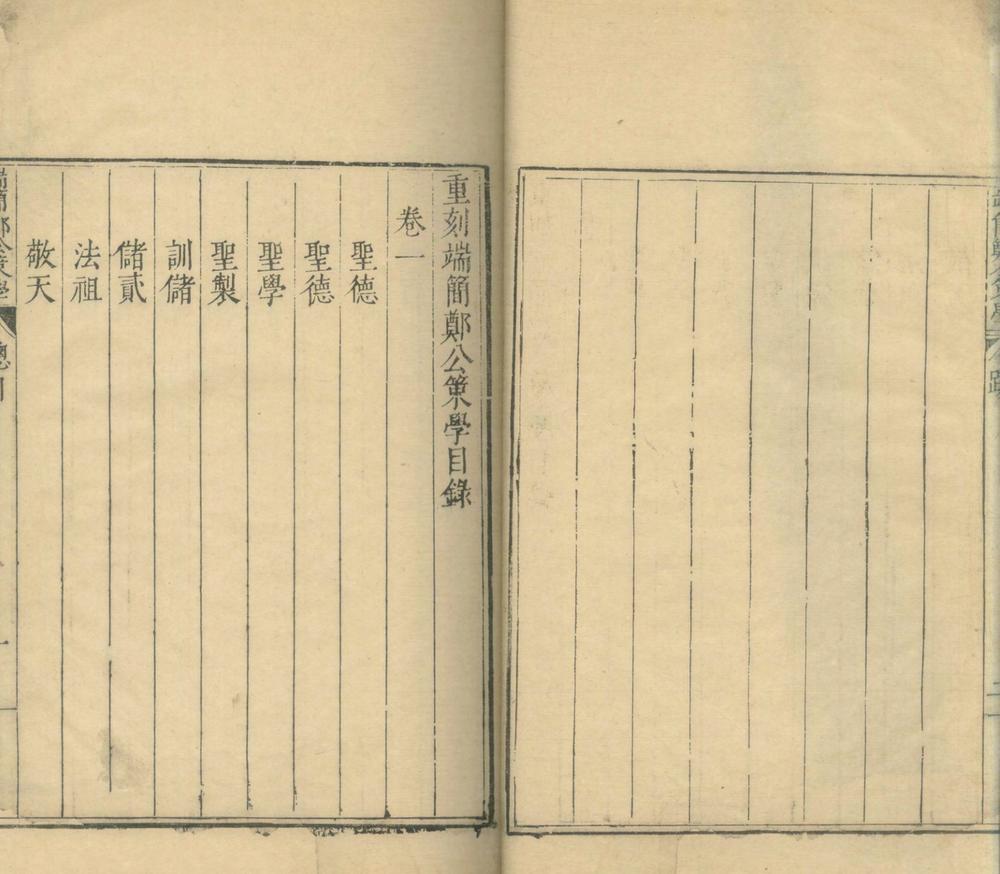 重刻端簡鄭公策學目錄
卷一
聖德
聖德
聖學
聖製
訓儲
儲貳
法祖
敬天
端簡鄭公策學
總目
一